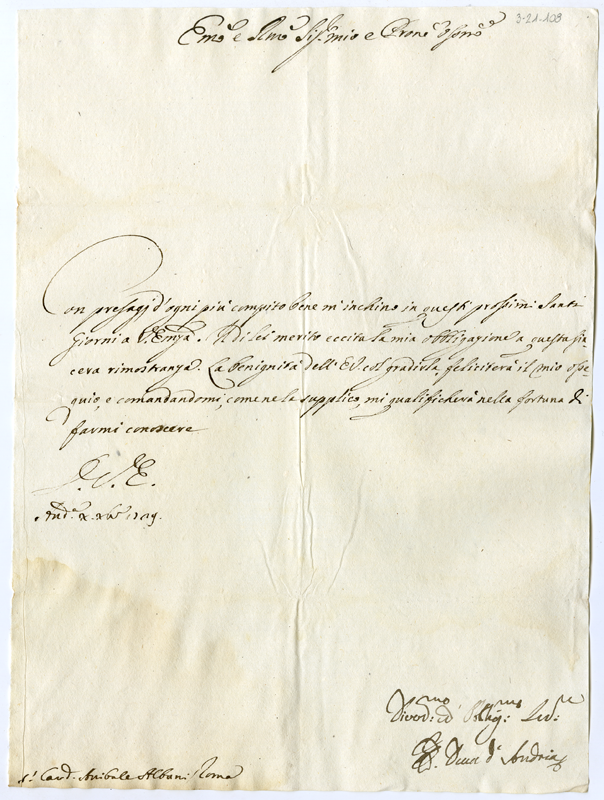 3-21-108
Em.o e Rmo Sig.r mio e Prone Ossmo
Con presagj d'ogni più compito bene m'inchino in questi prossimi Santi
Giorni a V. Emza. Il di lei merito eccita la mia obbligazione a questa sin
cera rimostranza. La benignità dell' E.V. col gradirla, feliciterà il mio osse
quio, e comandandomi, come ne la supplico, mi qualificherà nella fortuna di
farmi conoscere
D. V. E.
And.a X. Xbre 1719.
Divot.mo ed Obblig.mo Ser.re
Duca d'Andria
S.r Card. Anibale Albani Roma